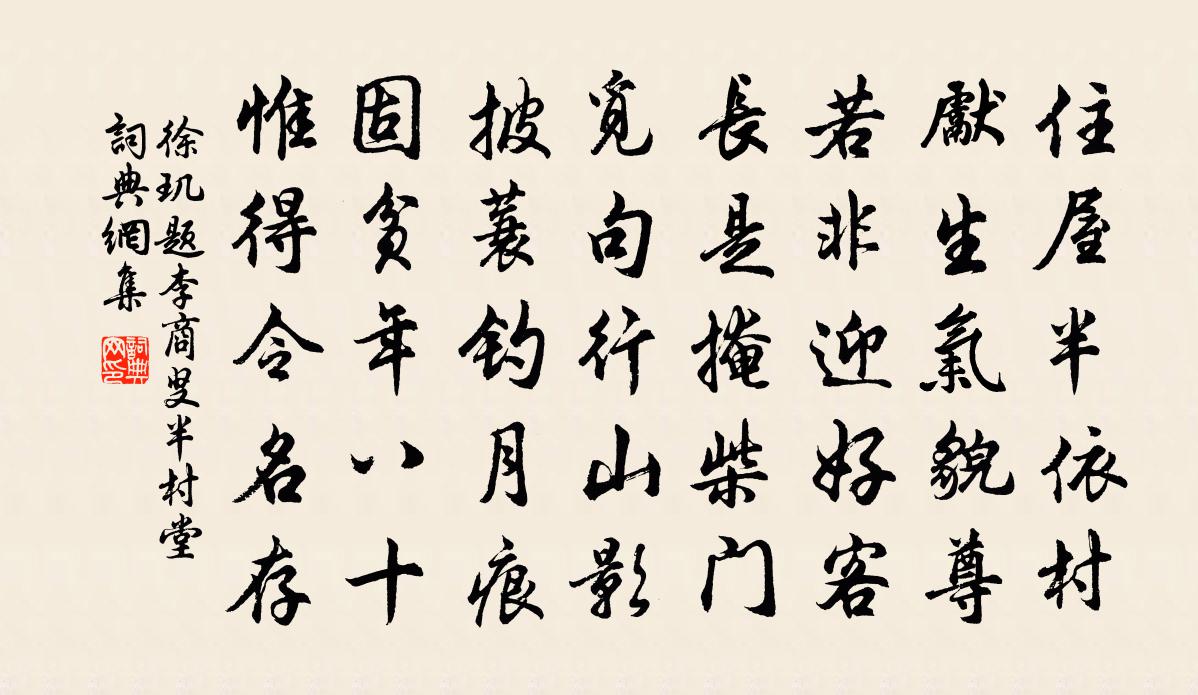 住屋半依村
獻生氣貌尊
若非迎好客
長是掩柴門
覓句行山影
披蓑釣月痕
固貧年八十
惟得令名存
徐玑題李商叟半村堂
詞典網集
詞典網印